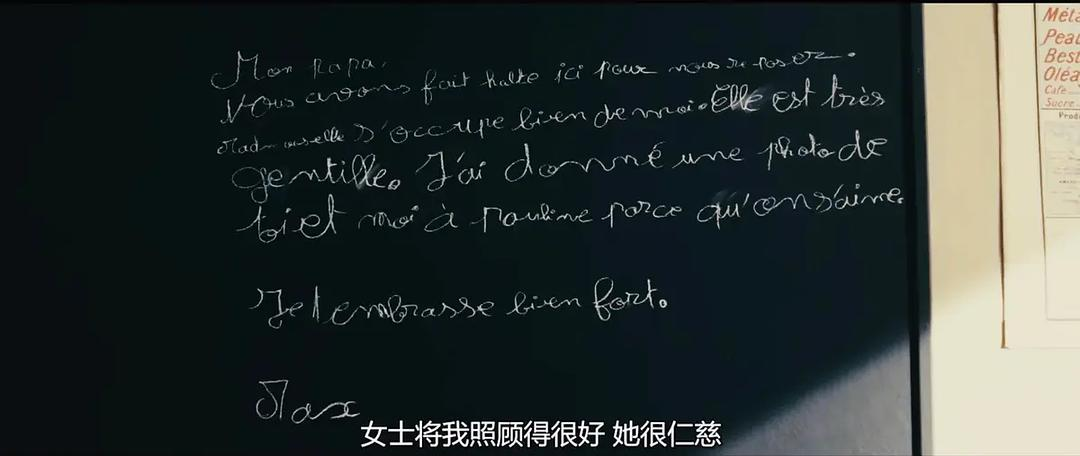 Mon papa,
Nous avons fait halte ici pour nous reposer.
Mademoiselle s'occupe bien de moi. Elle est très
gentille. J'ai donné une photo de
toi et moi à Pauline parce qu'on s'aime.
Je t'embrasse bien fort.
Max
女士将我照顾得很好 她很仁慈
Méta
Peau
Best
Oléa
Café
Sucre
Prod